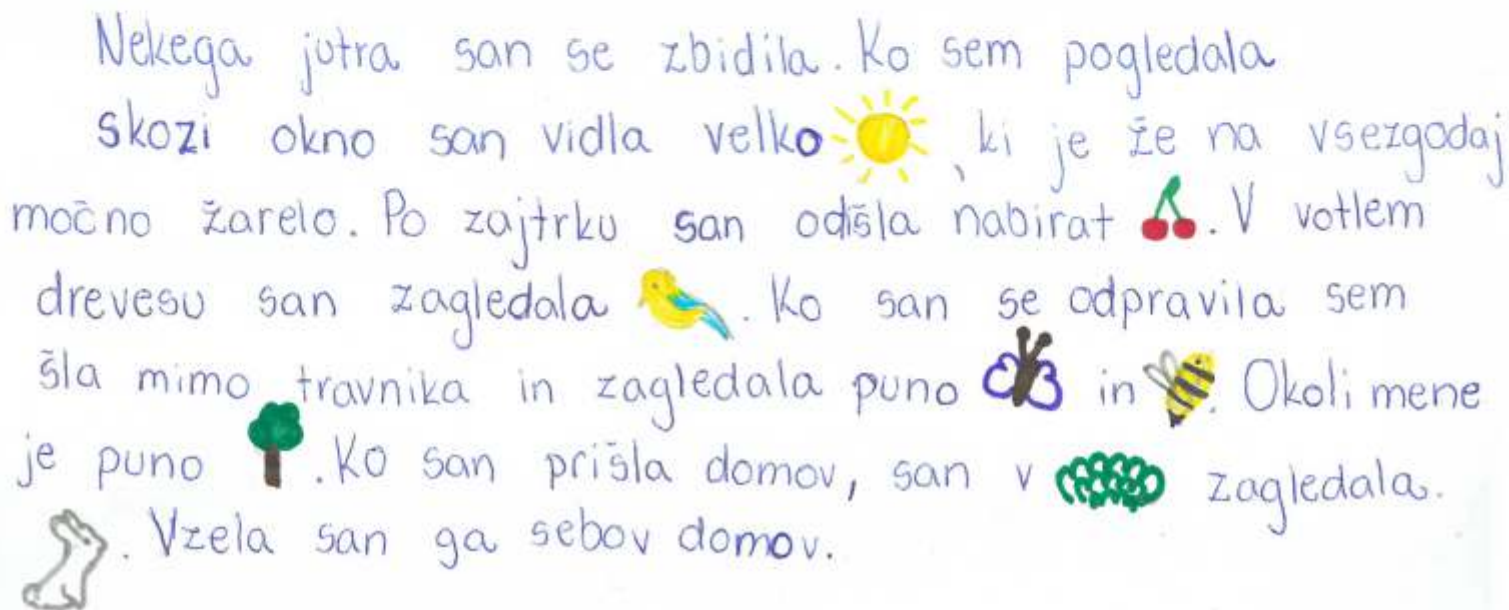 Nekega jutra san se zbidila. Ko sem pogledala
skozi okno san vidla velko , ki je že na vsezgodaj
močno žarelo. Po zajtrku san odišla nabirat . V votlem
drevesu san zagledala . Ko san se odpravila sem
šla mimo travnika in zagledala puno in . Okoli mene
je puno . Ko san prišla domov, san v zagledala.
. Vzela san ga sebov domov.